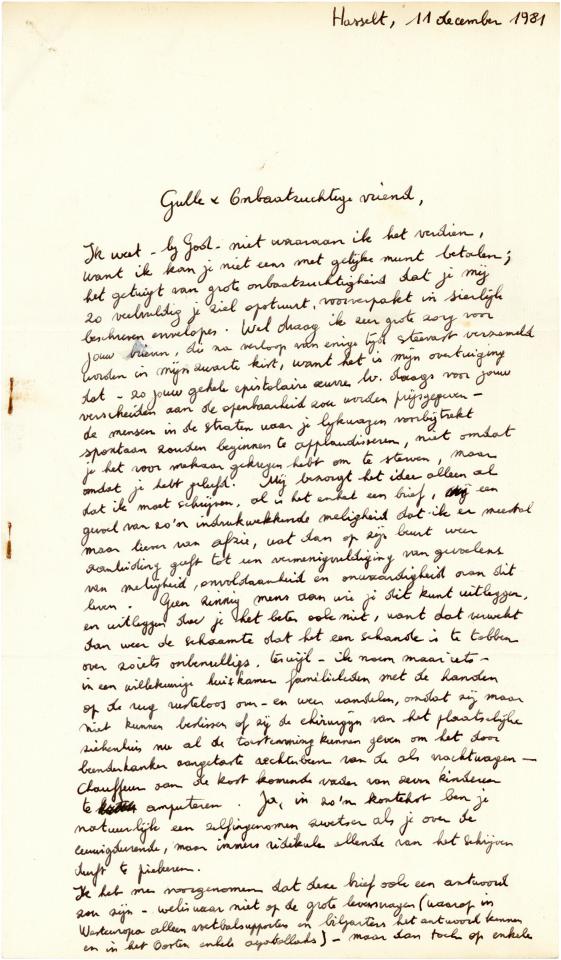 Hasselt, 11 december 1981
Gulle & Onbaatzuchtige vriend,
Ik weet - by God - niet waaraan ik het verdien,
want ik kan je niet eens met gelyke munt betalen;
het getuigt van grote onbaatzuchtigheid dat je mij
zo veelvuldig je ziel opstuurt, voorverpakt in sierlijk
beschreven envelopes. Wel draag ik zeer grote zorg voor
jouw brieven, die na verloop van enige tijd steevast verzameld
worden in mijn zwarte kist, want het is mijn overtuiging
dat - zo jouw gehele epistolaire œuvre daags voor jouw
verscheiden aan de openbaarheid zou worden prijsgegeven -
de mensen in de straten waar je lykwagen voorbijtrekt
spontaan zouden beginnen te applaudisseren, niet omdat
je het voor mekaar gekregen hebt om te sterven, maar
omdat je hebt geleefd. Mij bezorgt het idee alleen al
dat ik moet schrijven, al is het enkel een brief, een
gevoel van zo'n indrukwekkende meligheid dat ik er meestal
maar liever van afzie, wat dan op zijn beurt weer
aanleiding geeft tot een vermenigvuldiging van gevoelens
van meligheid, onvoldaanheid en onwaardigheid over dit
leven. Geen zinnig mens aan wie je dit kunt uitleggen,
en uitleggen doe je het beter ook niet, want dat verwekt
dan weer de schaamte dat het een schande is te tobben
over zoiets onbenulligs, terwijl - ik noem maar iets -
in een willekeurige huiskamer familieleden met de handen
op de rug rusteloos over- en weer wandelen, omdat zij maar
niet kunnen beslissen of zij de chirurgyn van het plaatselijke
ziekenhuis nu al de toestemming kunnen geven om het door
beenderkanker aangetaste rechterbeen van de als vrachtwagen-
chauffeur aan de kost komende vader van zeven kinderen
te amputeren. Ja, in zo'n kontekst ben je
natuurlijk een zelfingenomen zwetser als je over de
eeuwigdurende, maar immers ridikule ellende van het schrijven
durft te pieberen.
Ik heb me voorgenomen dat deze brief ook een antwoord
zou zijn - weliswaar niet op de grote levensvragen (waarop in
Westeuropa alleen voetbalsupporters en biljarters het antwoord kennen
en in het Oosten enkele ayatollahs) - maar dan toch op enkele